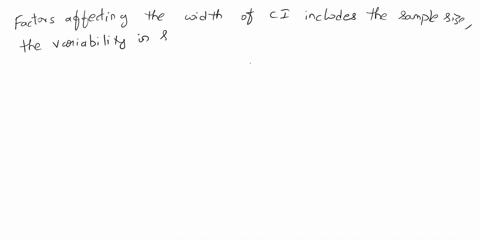 Factors affecting the width of CI includes the sample size,
the variability in s